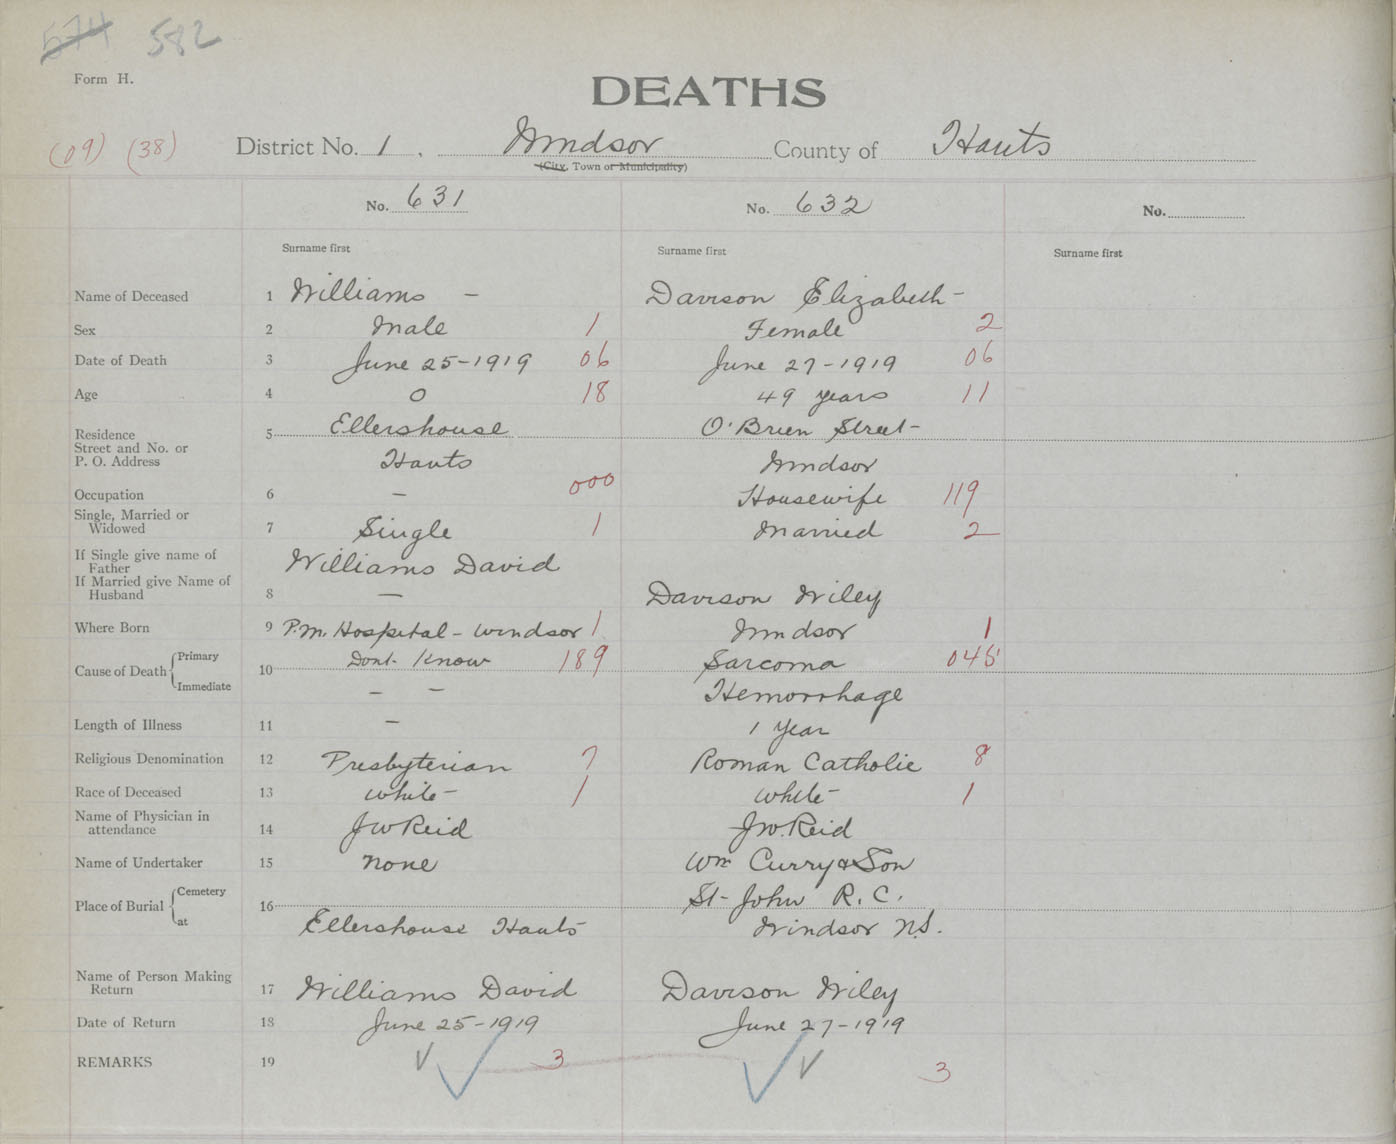 574 582
Form H.
DEATHS
(09) (38) District No. 1, Windsor County of Hants
(City, Town or Municipality)
No. 631 No. 632 No.
Surname first Surname first Surname first
Name of Deceased 1 Williams – Davison Elizabeth –
Sex 2 Male 1 Female 2
Date of Death 3 June 25-1919 06 June 27-1919 06
Age 4 0 18 49 years 11
Residence 5 Ellershouse O'Brien Street
Street and No. or
P. O. Address Hants Windsor
Occupation 6 – 000 Housewife 119
Single, Married or
Widowed 7 Single 1 Married 2
If Single give name of
Father Williams David
If Married give Name of
Husband 8 – Davison Wiley
Where Born 9 P.M. Hospital – Windsor 1 Windsor 1
Cause of Death Primary 10 Dont Know 189 Sarcoma 045
Immediate – – Hemorrhage
Length of Illness 11 – 1 Year
Religious Denomination 12 Presbyterian 7 Roman Catholic 8
Race of Deceased 13 white 1 white 1
Name of Physician in
attendance 14 J W Reid J W. Reid
Name of Undertaker 15 none Wm Curry & Son
Place of Burial Cemetery 16 St John R. C.
at Ellershouse Hants Windsor N.S.
Name of Person Making
Return 17 Williams David Davison Wiley
Date of Return 18 June 25-1919 June 27-1919
REMARKS 19 3 3